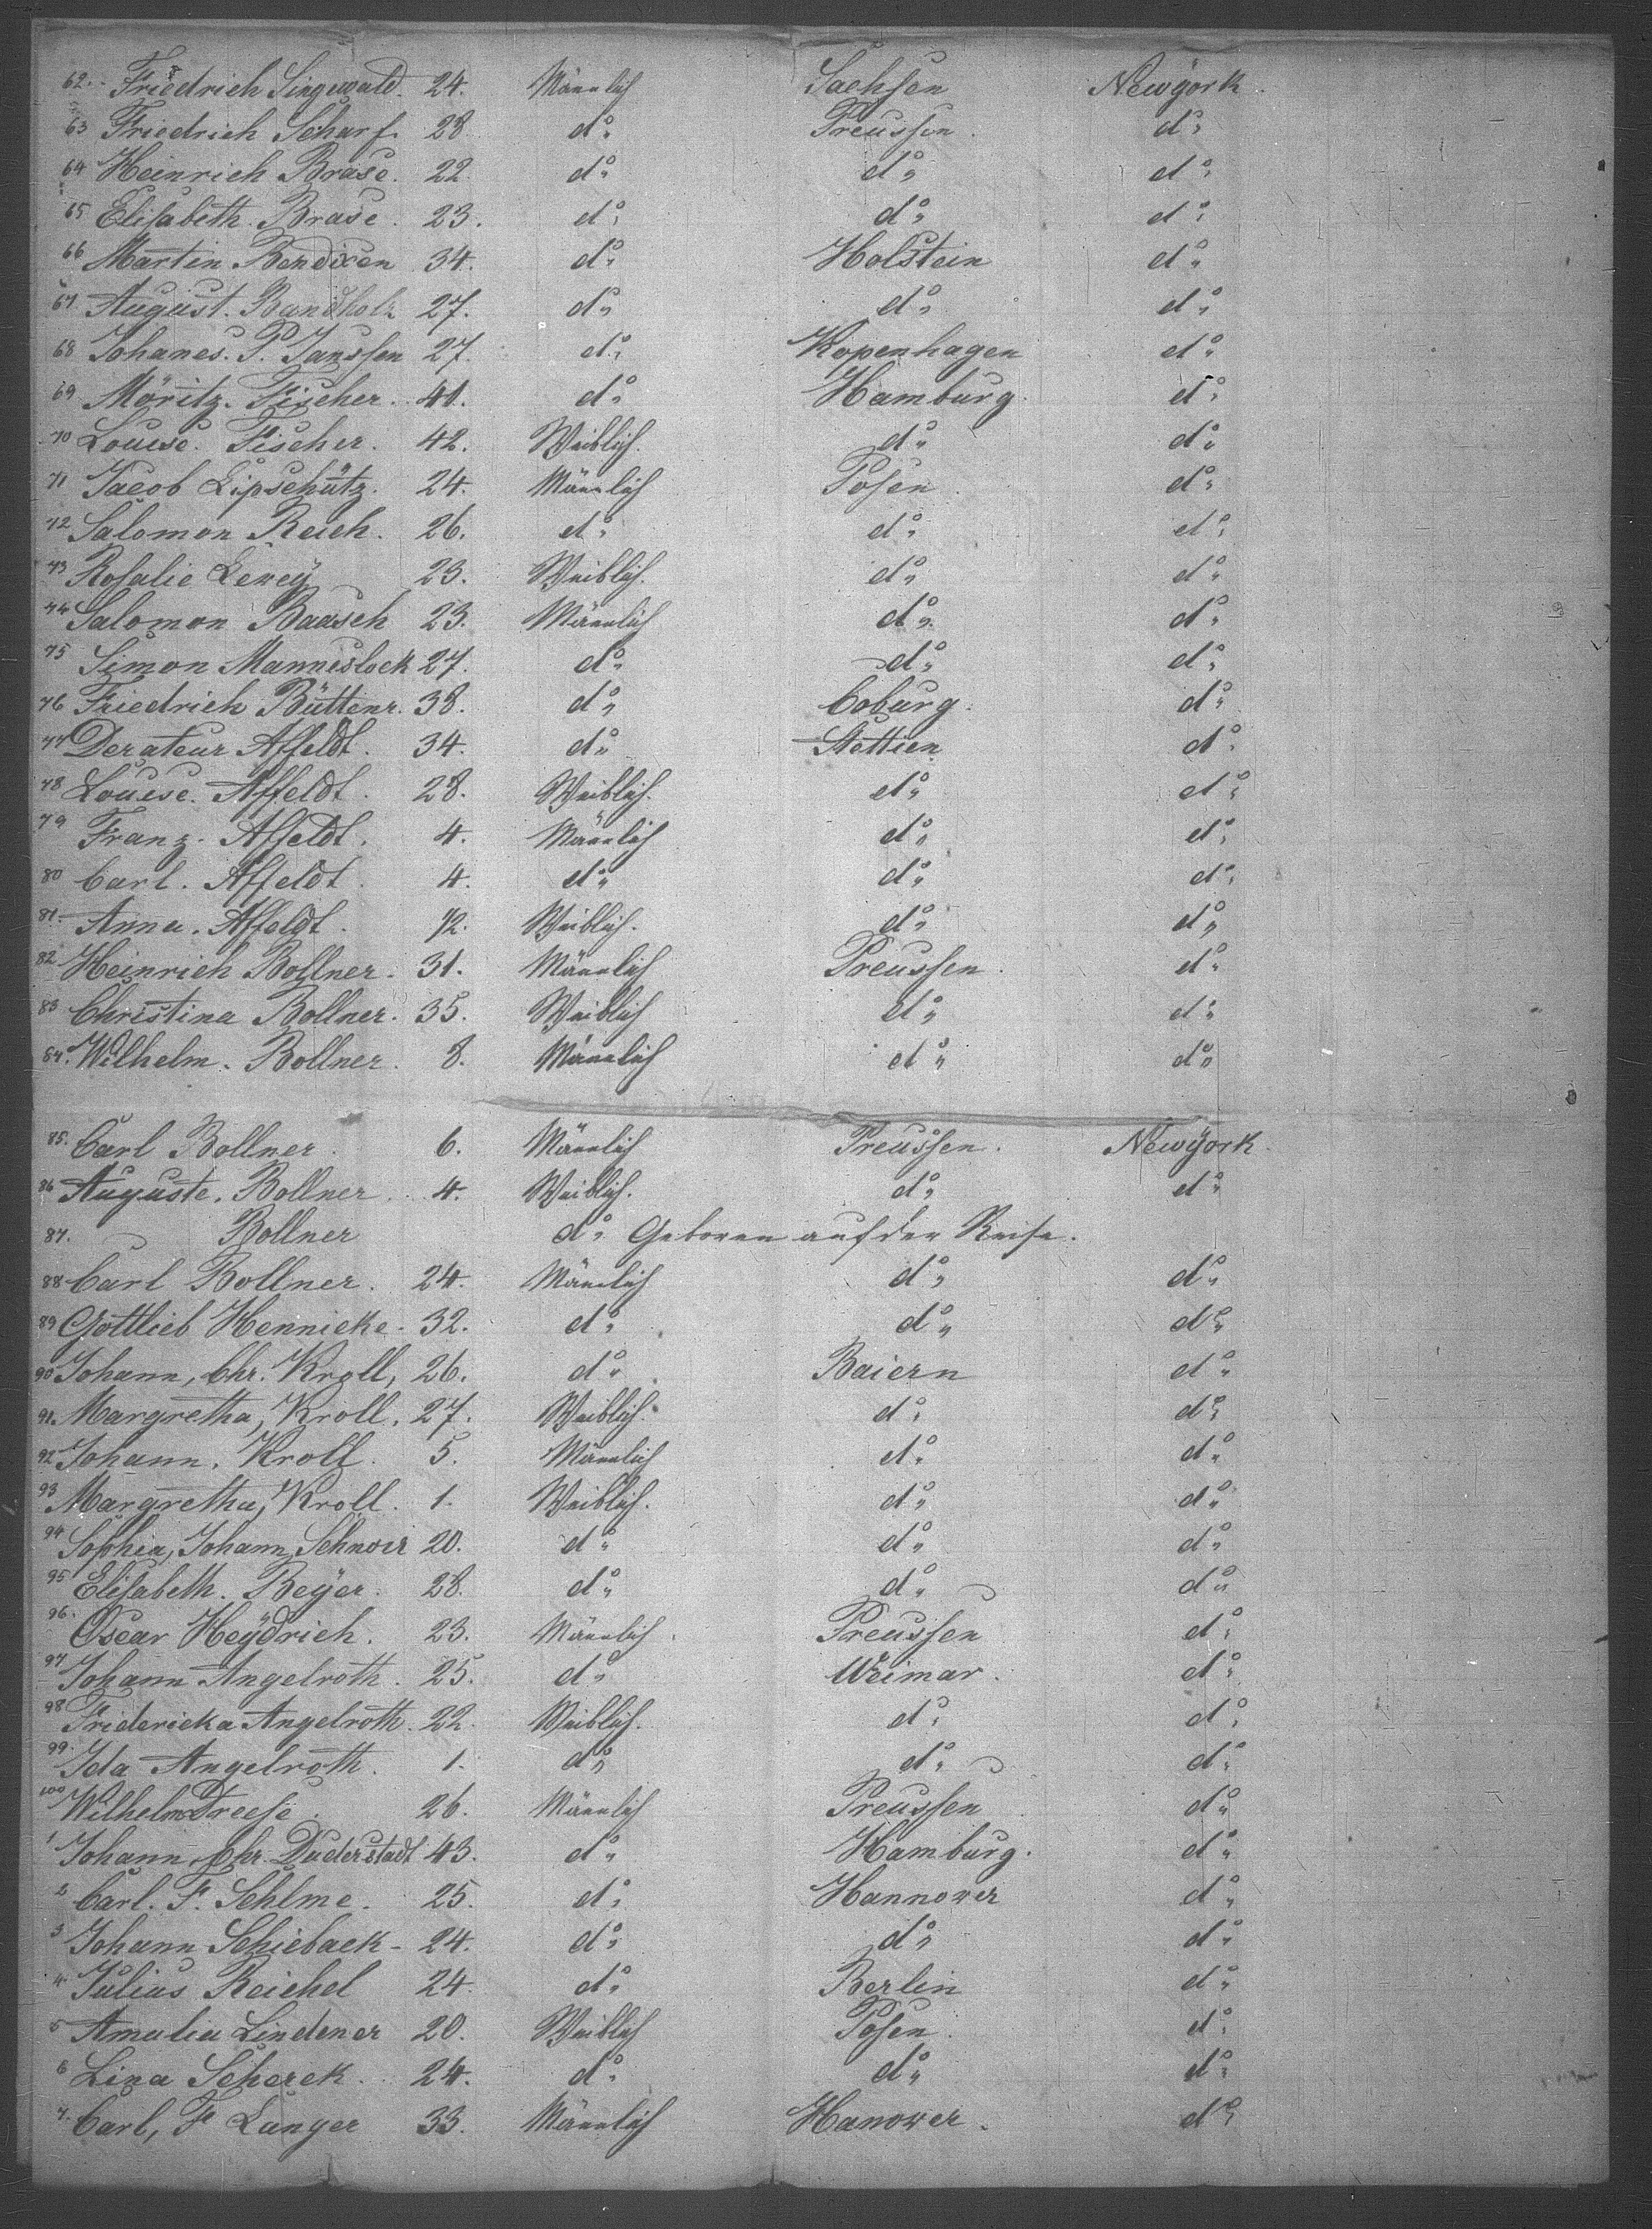 62. Friedrich Singewald. 24. Männlich Sachsen Newÿork.
63 Friedrich Scharf. 28 do: Preussen. do:
64 Heinrich Brase. 22. do: do: do:
65 Elisabeth. Brase. 23. do: do: do:
66 Martin Bendixen 34. do: Holstein do:
67. August. Bandholz 27. do: do: do:
68 Johanes. P. Janssen 27. do: Kopenhagen do:
69 Möritz. Fischer. 41. do: Hamburg. do:
70 Louise. Fischer. 42. Weiblich. do: do:
71 Jacob Lipschütz. 24. Männlich Posen. do:
72 Salomon Reich. 26. do: do: do:
73 Rosalie Lewey 23. Weiblich. do: do:
74 Salomon Baasch 23. Männlich do: do:
75 Simon Manneslock 27. do: do: do:
76 Friedrich Büttenr. 38. do: Coburg. do:
77 Derateur Affeldt. 34. do: Stettien do:
78 Louise. Affeldt. 28. Weiblich. do: do:
79 Franz. Affeldt. 4. Männlich do: do:
80 Carl. Affeldt. 4. do: do: do:
81. Anna. Affeldt. 1/2. Weiblich. do: do:
82 Heinrich Bollner. 31. Männlich Preussen. do:
83 Christina Bollner. 35. Weiblich do: do:
84. Wilhelm. Bollner. 8. Männlich do: do:
85. Carl Bollner. 6. Männlich Preussen. Newÿork.
86 Auguste. Bollner. 4. Weiblich. do: do:
87. Bollner do: Geboren auf der Reise.
88 Carl Bollner. 24. Männlich do: do:
89 Gottlieb Hennicke. 32. do: do: do:
90 Johann, Chr. Kroll, 26. do: Baiern do:
91. Margretha, Kroll. 27. Weiblich. do: do:
92 Johann. Kroll. 5. Männlich do: do:
93 Margretha, Kroll. 1. Weiblich. do: do:
94 Sophia, Johann, Schnorr 20. do: do: do:
95 Elisabeth. Beÿer. 28. do: do: do:
96. Oscar Heÿdrich. 23. Männlich. Preussen do:
97 Johann Angelroth. 25. do: Weimar. do:
98 Fridericka Angelroth. 22. Weiblich. do: do:
99. Ida Angelroth. 1. do: do: do:
100 Wilhelm Dreese. 26. Männlich Preussen do:
1 Johann, Chr. Duderstadt 43. do: Hamburg. do:
2 Carl. F. Sehlme. 25. do: Hannover do:
3 Johann Schieback - 24. do: do: do:
4. Julius Reichel 24. do: Berlin do:
5 Amalia Lindener 20. Weiblich Posen. do:
6 Lina Scherek. 24. do: do: do:
7. Carl, F Langer 33. Männlich Hanower. do: